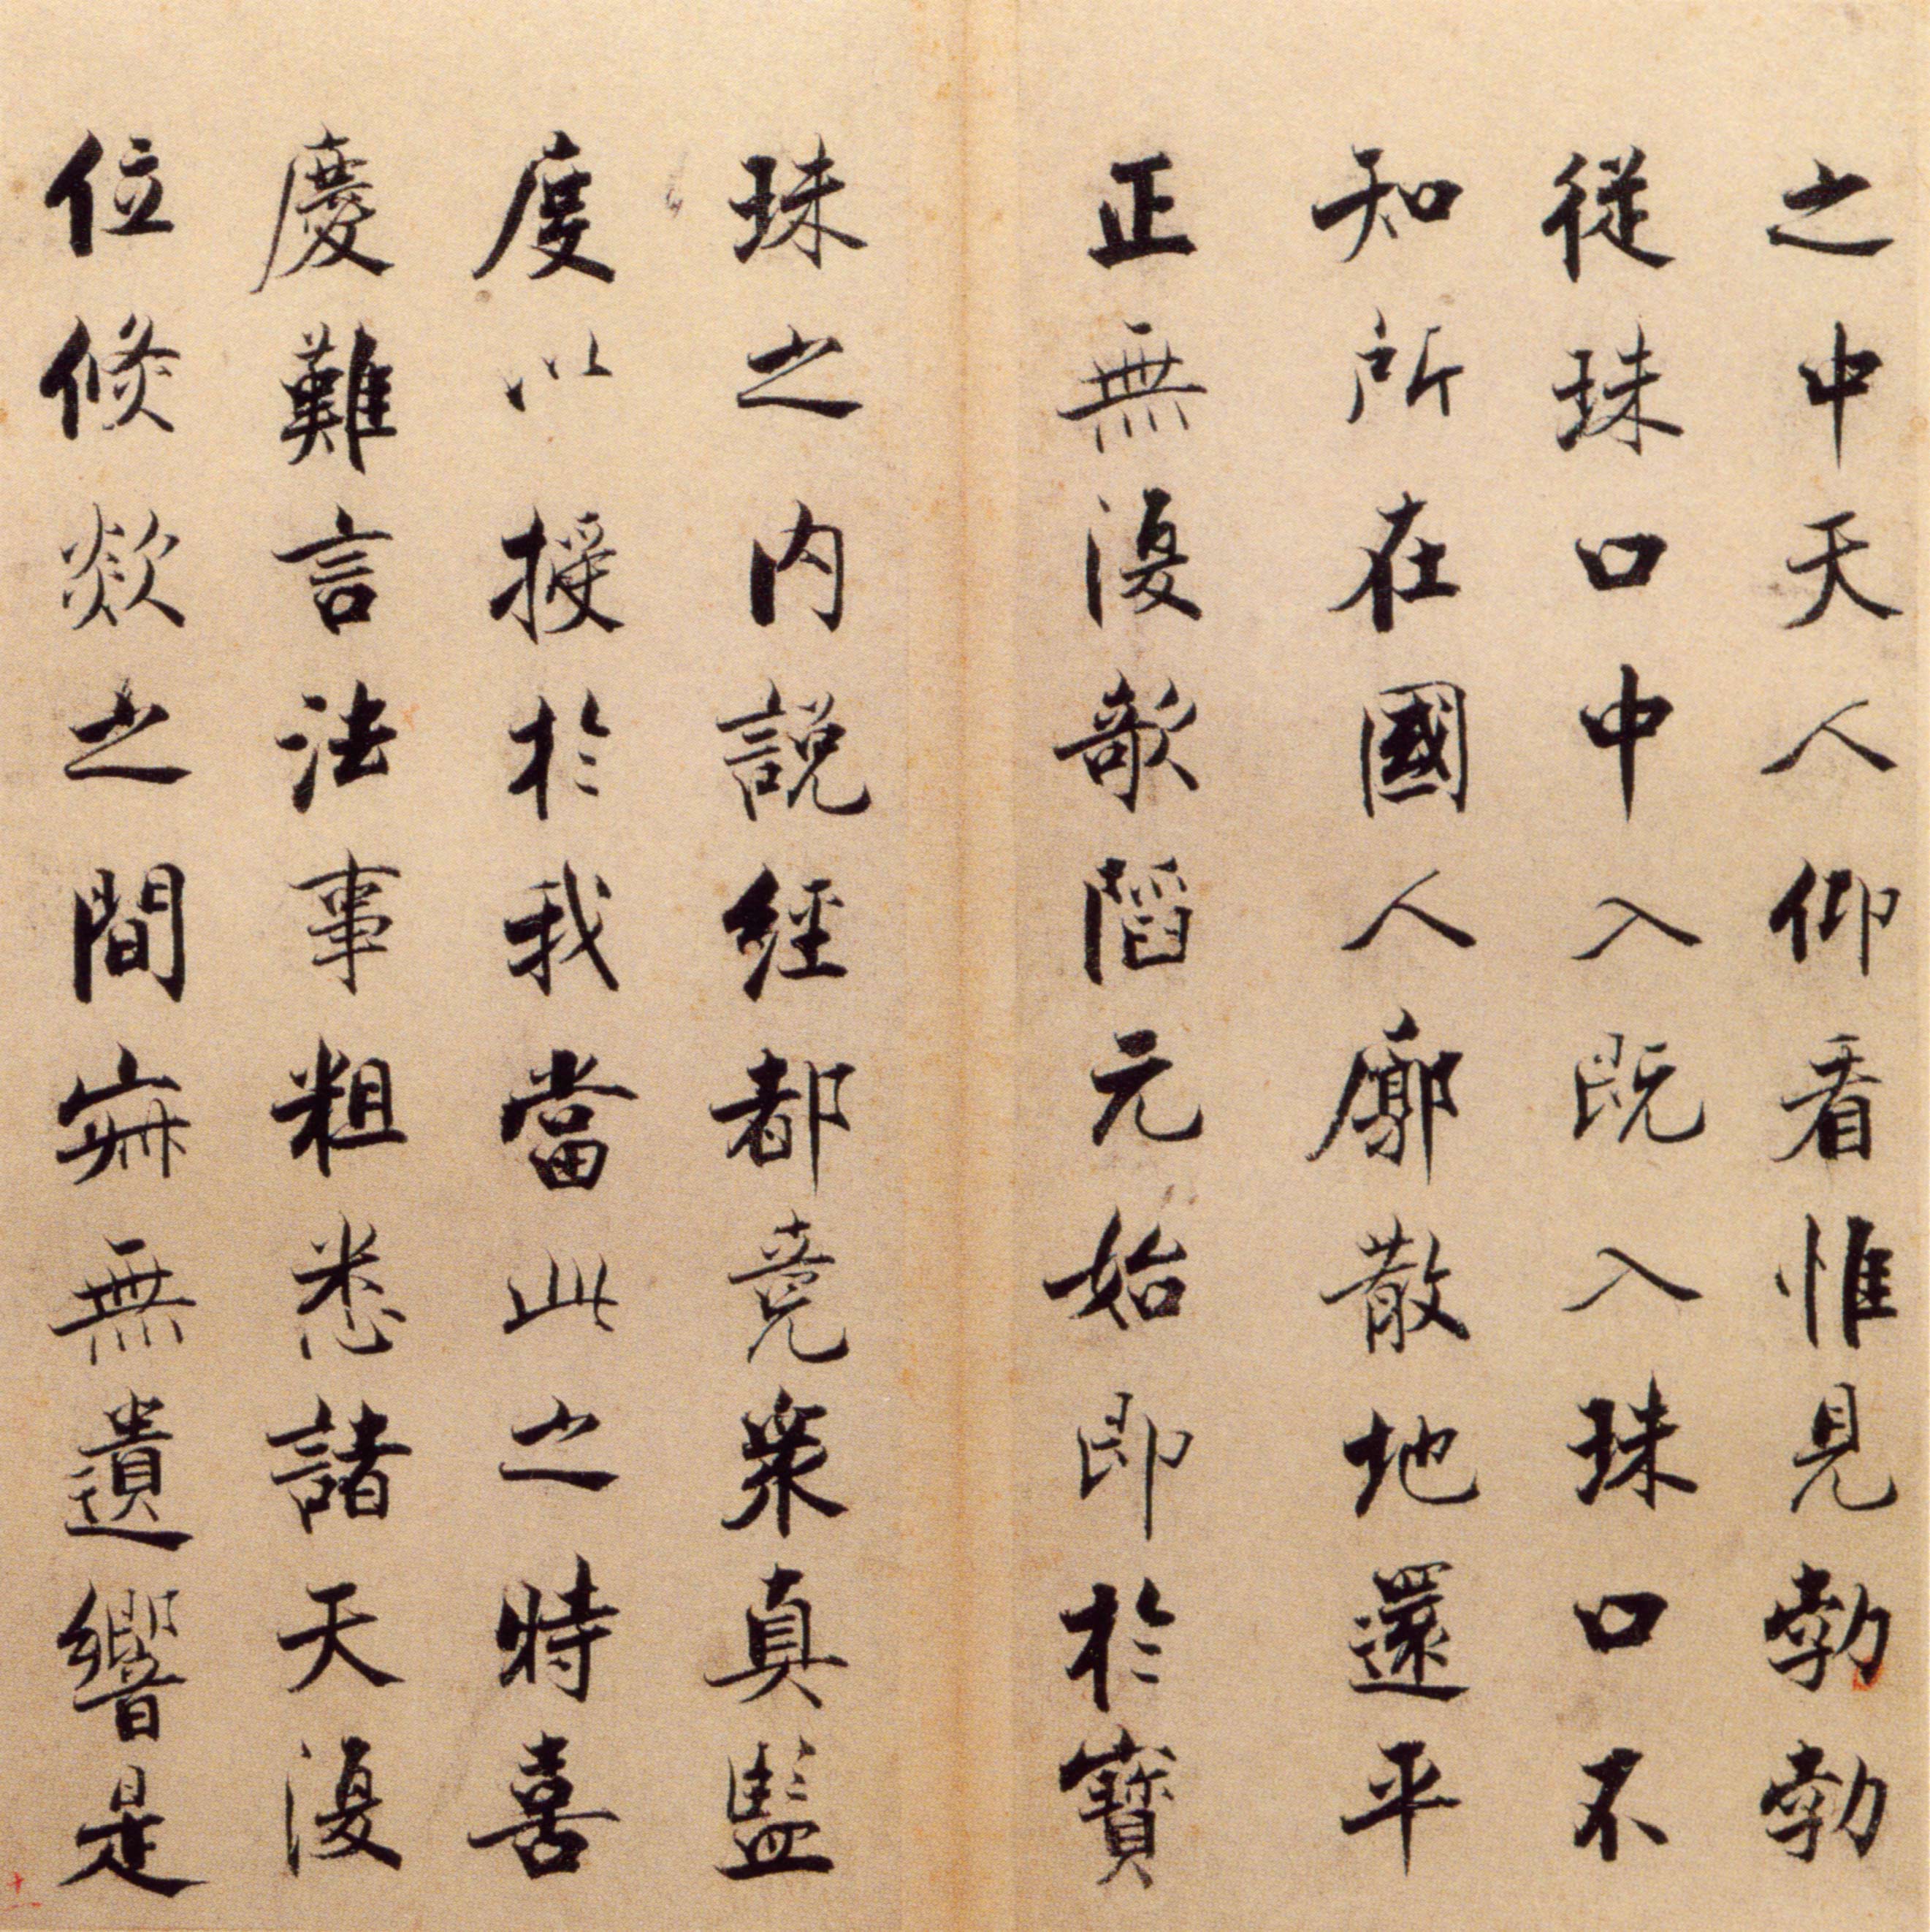 之中天人仰看惟見勃勃
從珠口中入既入珠口不
知所在國人廓散地還平
正無復欹陷元始即於寶
珠之内説經都竟衆真監
度以授於我當此之時喜
慶難言法事粗悉諸天復
位倏欻之間寂無遺響是